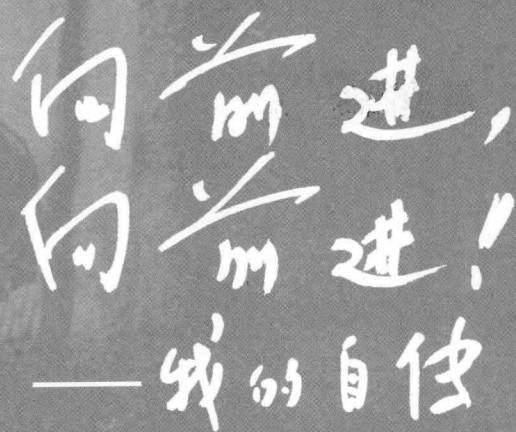 向前进，
向前进！
——我的自传